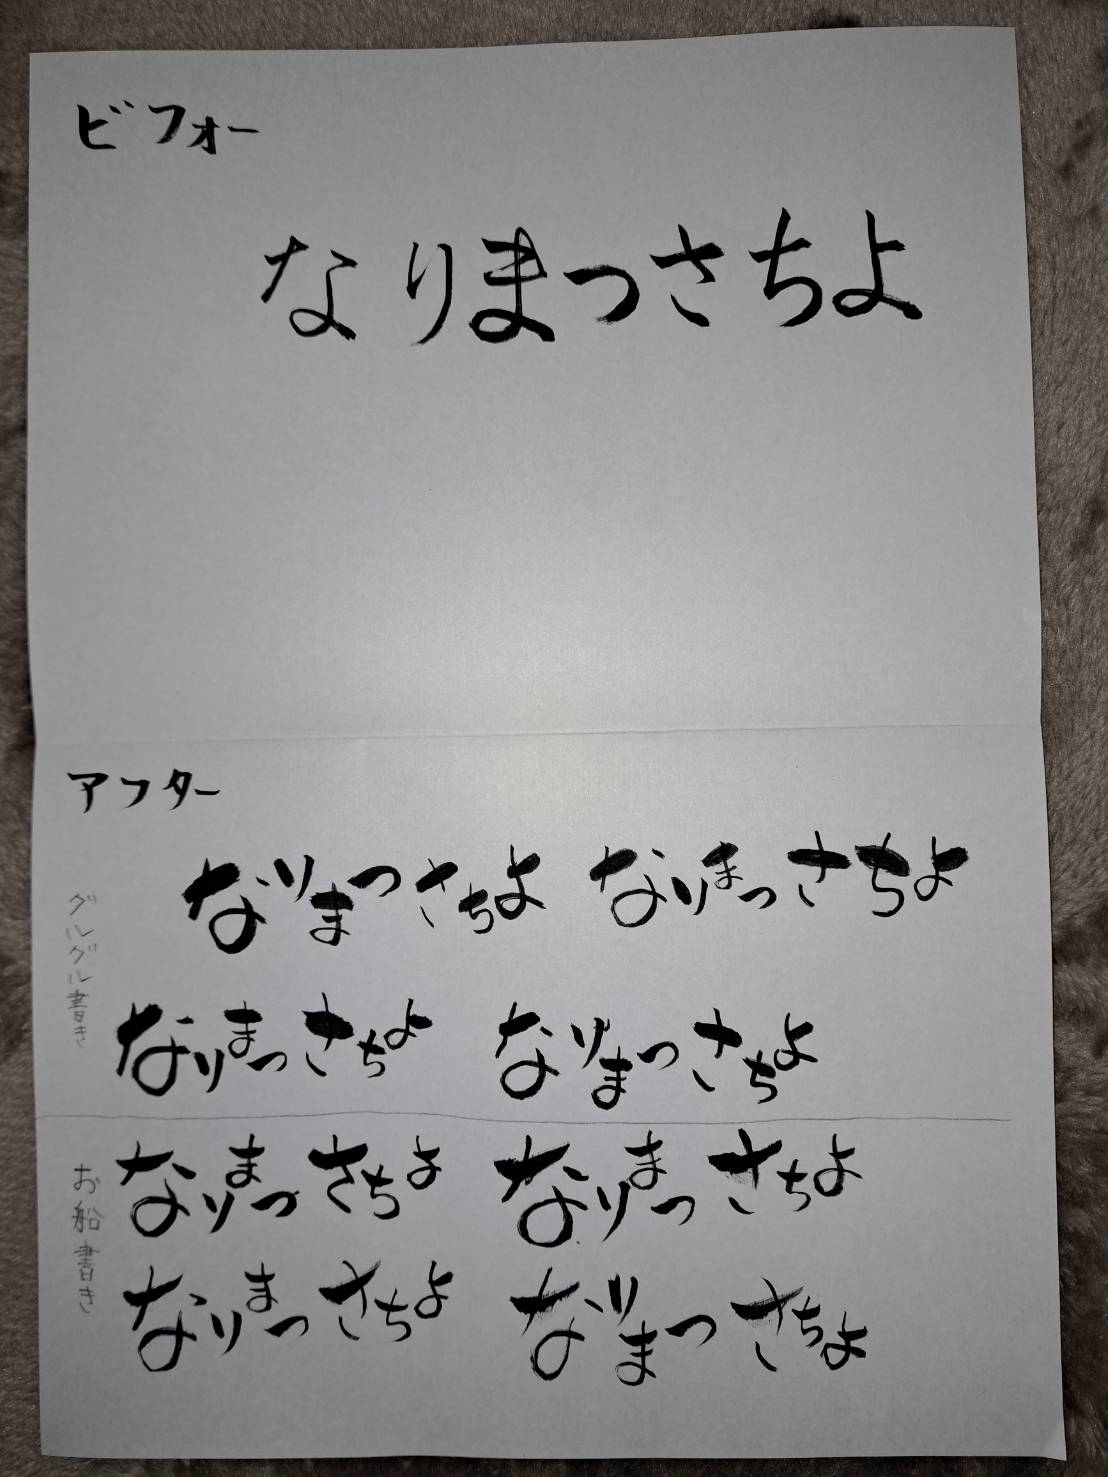 ビフォー
なりまつさちよ
アフター
グルグル書き
なりまつさちよ なりまつさちよ
なりまつさちよ なりまつさちよ
お船書き
なりまつさちよ なりまつさちよ
なりまつさちよ なりまつさちよ